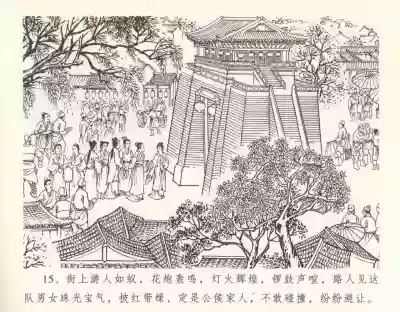 15、街上游人如蚁，花炮轰鸣，灯火辉煌，锣鼓声喧，路人见这
队男女珠光宝气，披红带绿，定是公侯家人，不敢碰撞，纷纷避让。